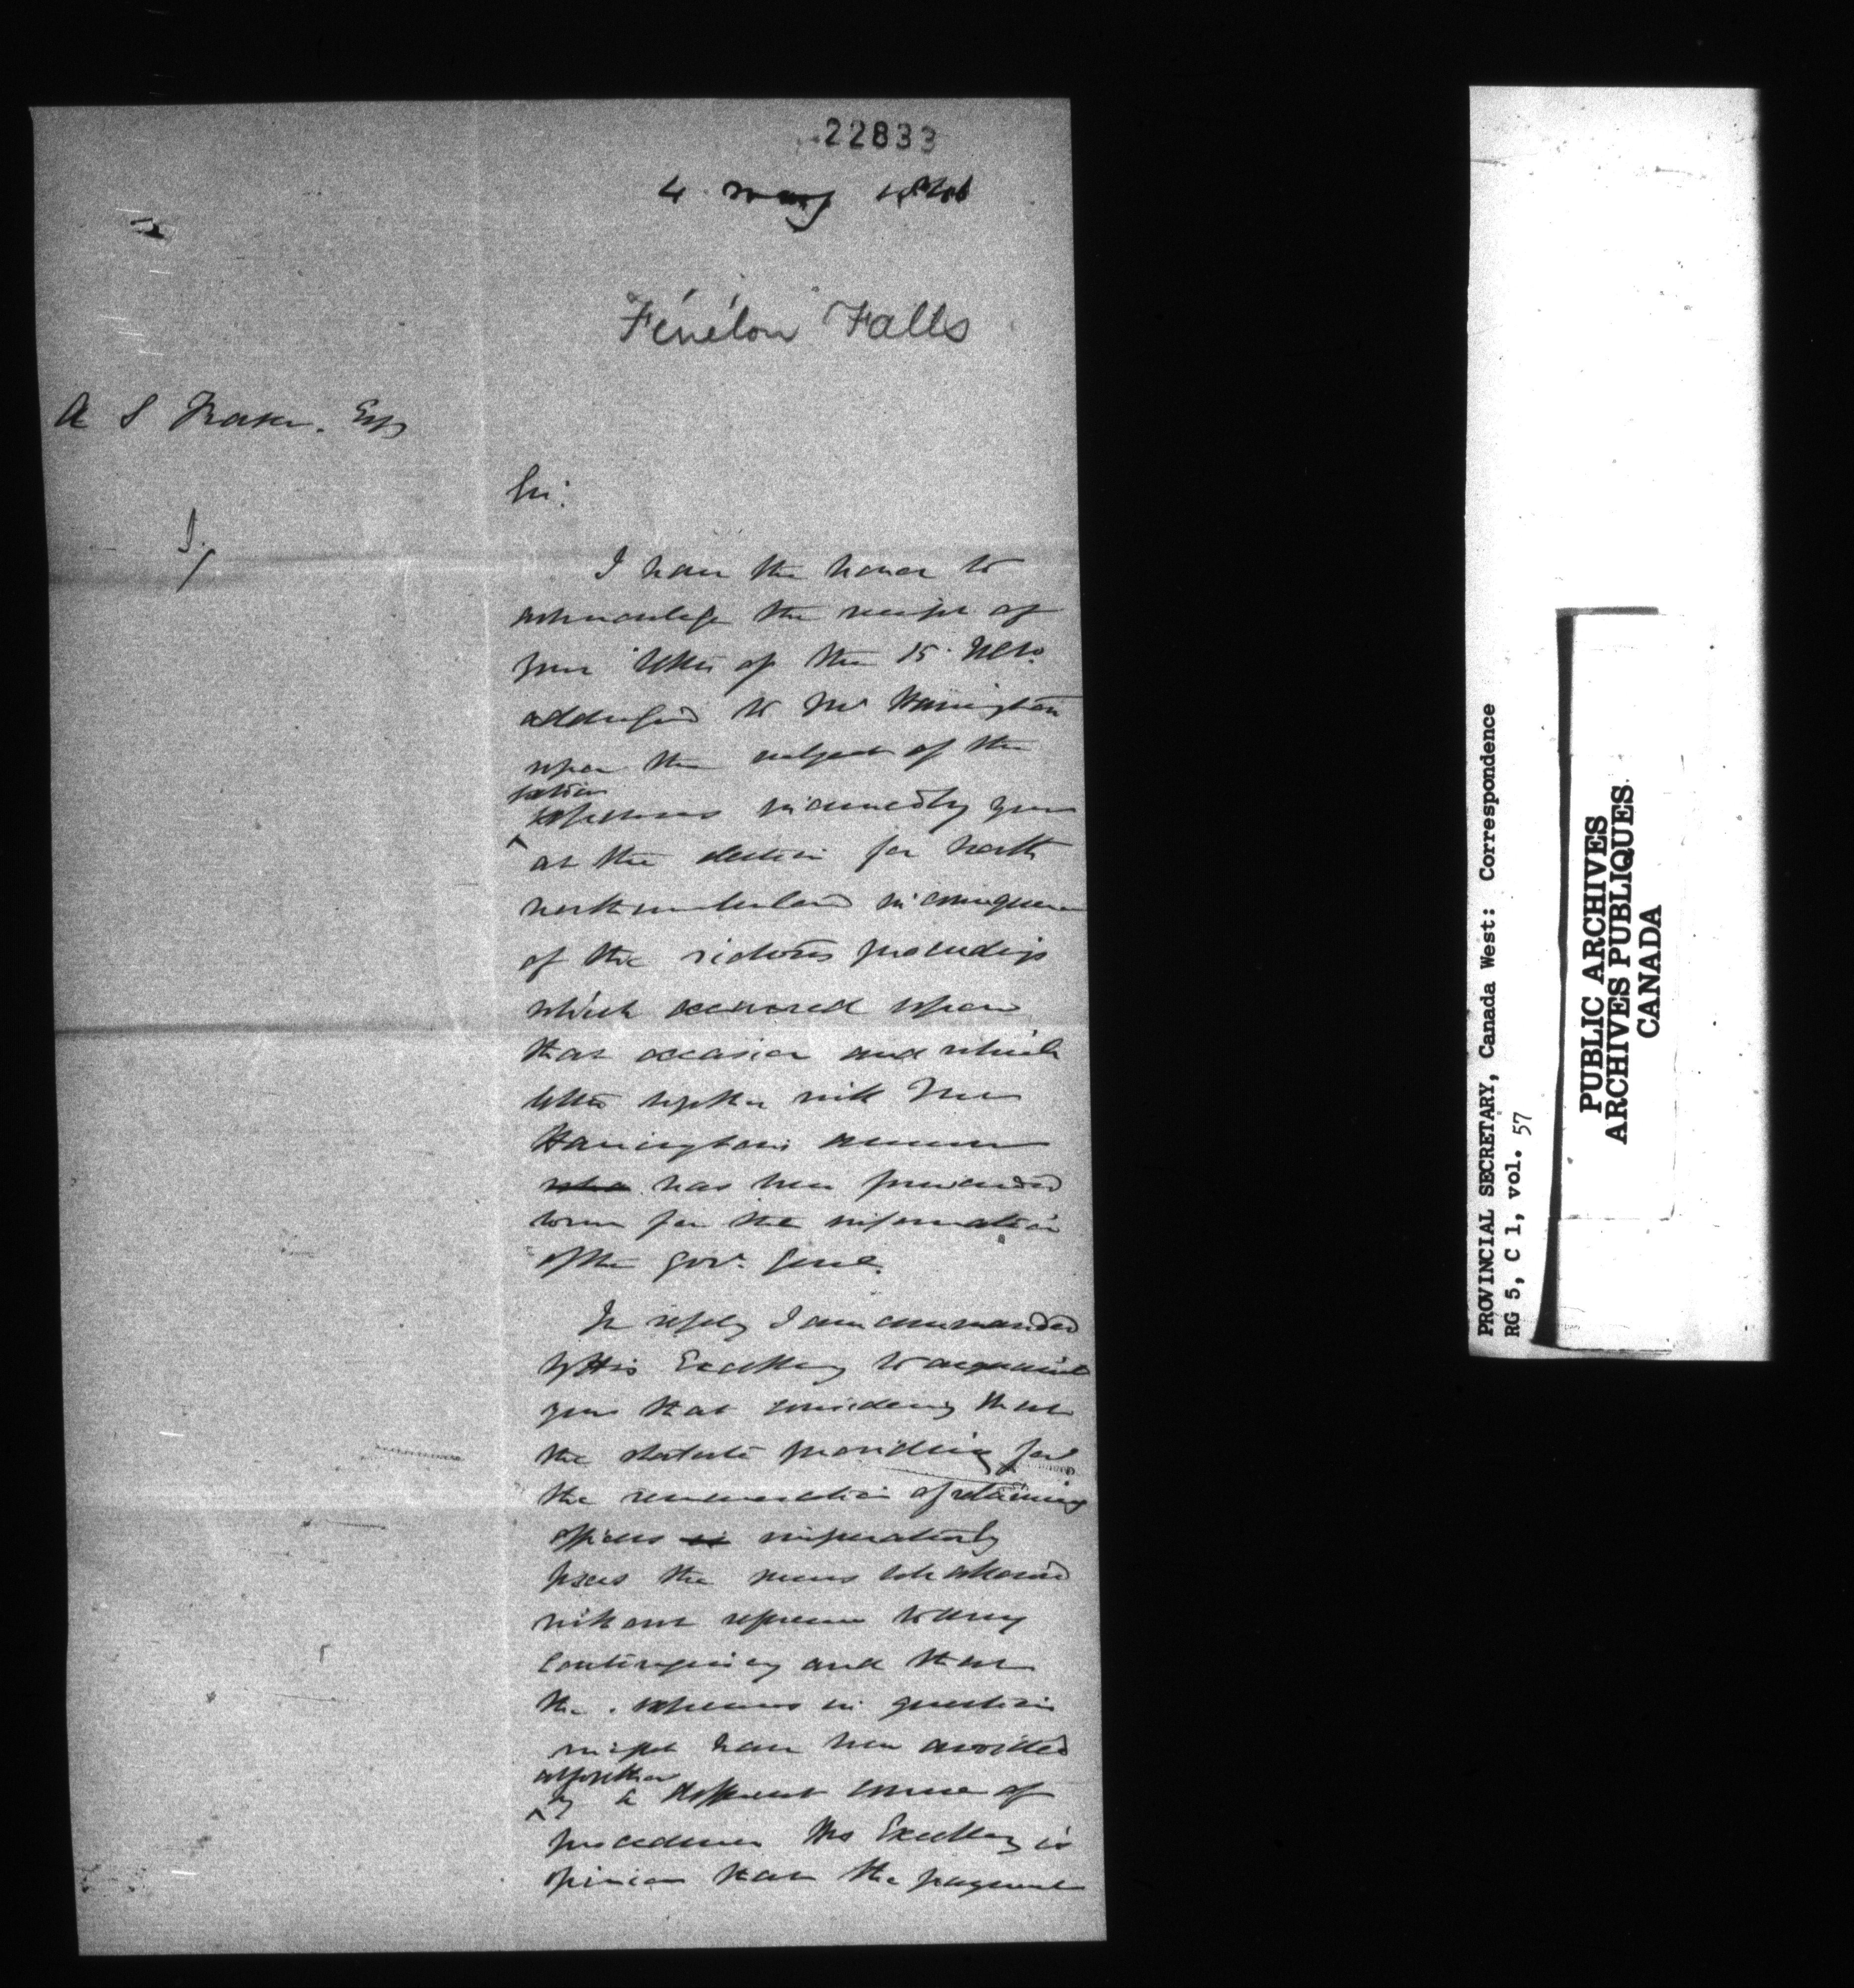 22833
4 May 1841
Fénélon Falls
A S Fraser. Esq
Sir:
I have the honor to
acknowledge the receipt of
your letter of the 15. Ulto.
addressed to Mr Harrington
upon the subject of the
expenses incurred by you
at the election for North
Northumberland in consequence
of the riotous proceedings
which occurred upon
that occasion and which
letter together with Mr
Harringtons answer
who has been forwarded
for the information
of the Govr. Genl.
In reply I am commanded
by His Excellency to acquaint
you that considering that
the statute providing for
the remuneration of returning
officers is imperatively
fixes the sums to be allowed
without reference to any
contingency and that
the expenses in question
might have been avoided
altogether
by a different course of
procedure His Excellency is
opinion that the payment
PROVINCIAL SECRETARY, Canada West: Correspondence
RG 5, C 1, vol. 57
PUBLIC ARCHIVES
ARCHIVES PUBLIQUES
CANADA